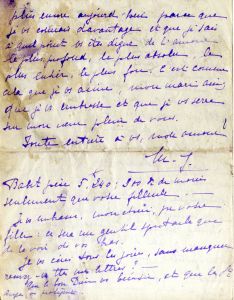 plus encore aujourd'hui parce que
je vs connais davantage et que je sais
à quel point vs êtes digne de l'amour
le plus profond, le plus absolu, le
plus entier, le plus fou. C'est comme
cela que je vs aime, mon mari aimé
que je vs embrasse et que je vs serre
sur mon cœur plein de vous.
Toute entière à vs, mon amour!
Bébé pèse 5, 240; 300 gr de moins
seulement que votre filleule
Je vs embrasse, mon chéri, par votre
fille: ce sera un gentil spectacle que
de la voir ds vos bras.
Je vs écris tous les jours, sans manquer
recevez-vs mes lettres?
Que le bon Dieu vs bénisse, et que la Ste